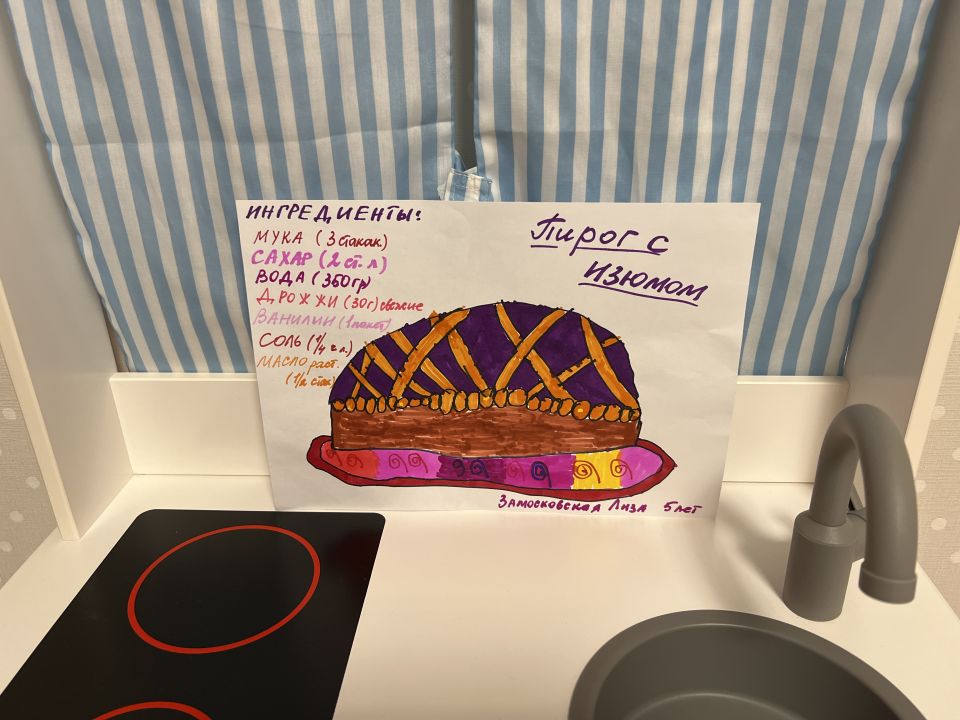 ИНГРЕДИЕНТЫ:
МУКА (3 стакан.)
САХАР (2 ст. л)
ВОДА (350гр)
ДРОЖЖИ (30г) свежие
ВАНИЛИН (1 пакет)
СОЛЬ (1/4 ч л.)
МАСЛО раст.
(1/2 стак)
Пирог с
изюмом
Замосковская Лиза 5 лет